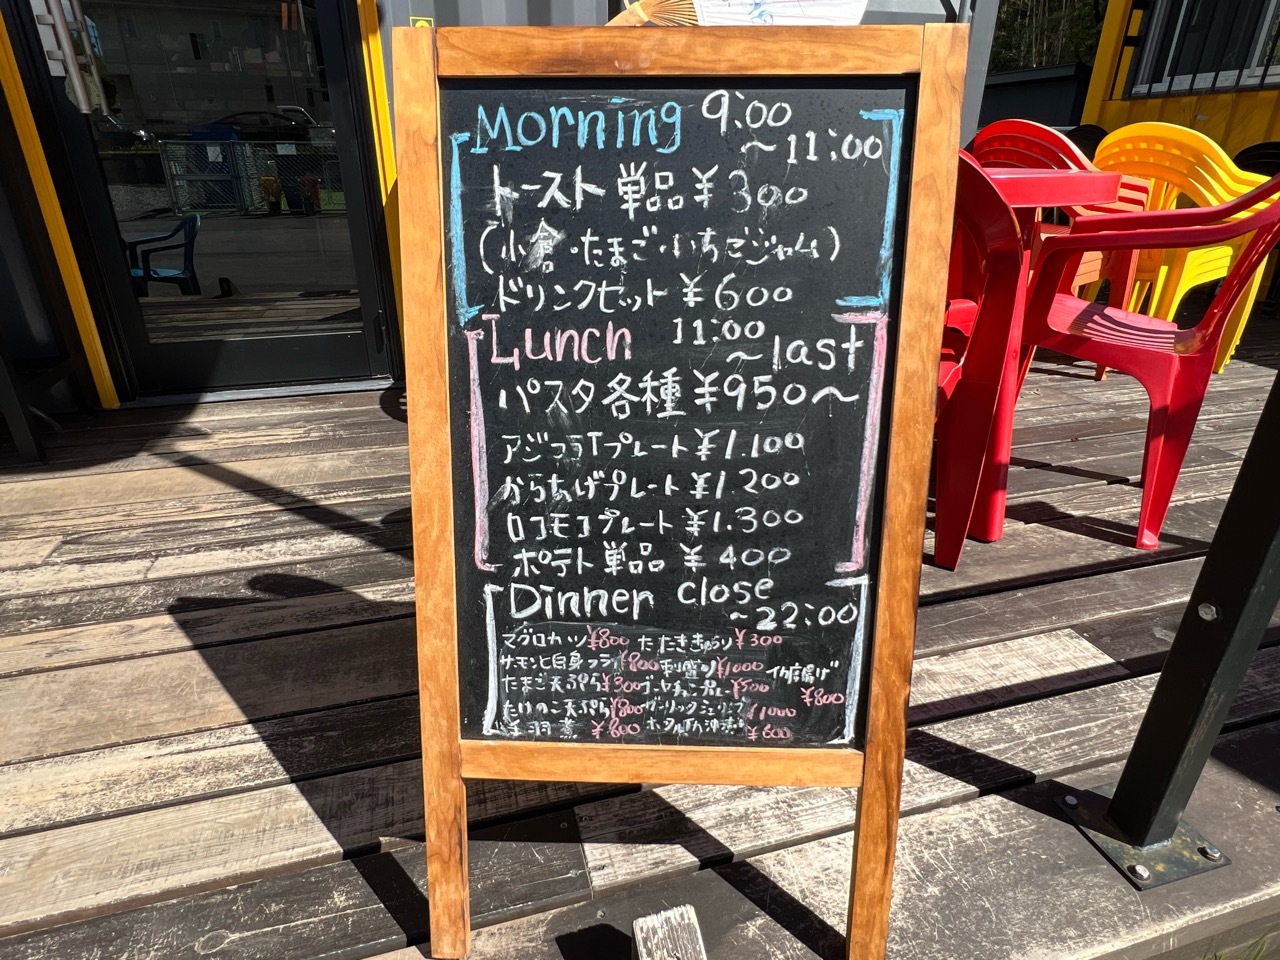 Morning 9:00
~11:00
トースト単品 ¥300
(小倉・たまご・いちごジャム)
ドリンクセット ¥600
Lunch 11:00
~last
パスタ各種 ¥950~
アジフライプレート ¥1.100
からあげプレート ¥1.200
ロコモコプレート ¥1.300
ポテト単品 ¥400
Dinner close
~22:00
マグロカツ ¥800 たたききゅうり ¥300
サーモンと白身フライ ¥800 刺盛り ¥1000 イカ唐揚げ
たまご天ぷら ¥300 ゴーヤチャンプルー ¥500 ¥800
たけのこ天ぷら ¥800 ガーリックシュリンプ ¥1000
¥800 ホタルイカ沖漬 ¥600